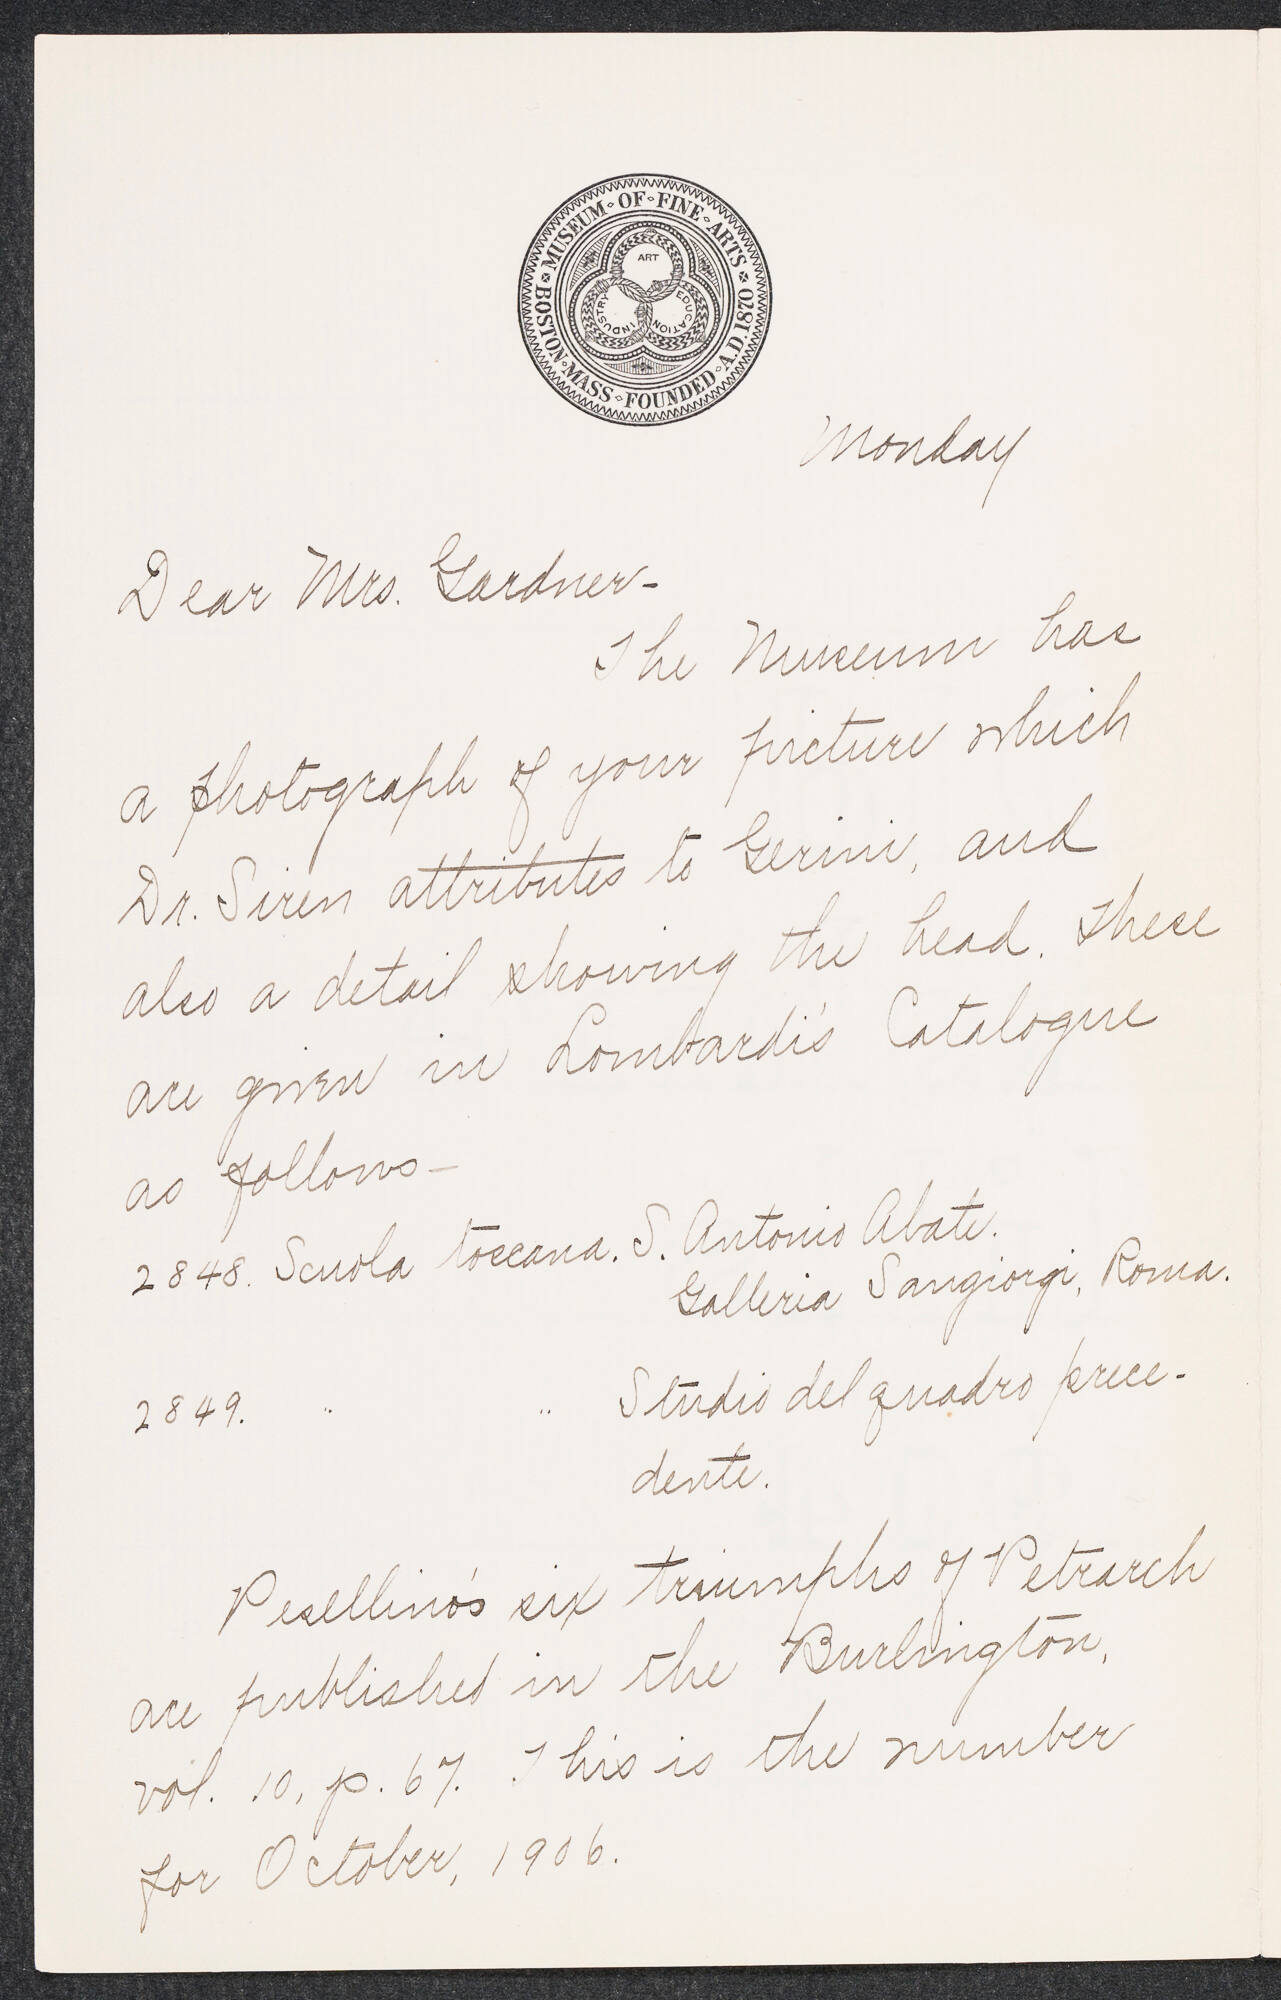 MUSEUM · OF · FINE · ARTS
BOSTON · MASS · FOUNDED · A.D. 1870
ART
INDUSTRY
EDUCATION
Monday
Dear Mrs. Gardner-
The Museum has
a photograph of your picture which
Dr. Siren attributes to Gerini, and
also a detail showing the head. These
are given in Lombardi's Catalogue
as follows-
2848. Scuola toscana. S. Antonio Abate.
Galleria Sangiorgi, Roma.
2849. " " Studio del quadro prece-
dente.
Pesellino's six triumphs of Petrarch
are published in the Burlington,
vol. 10, p. 67. This is the number
for October, 1906.